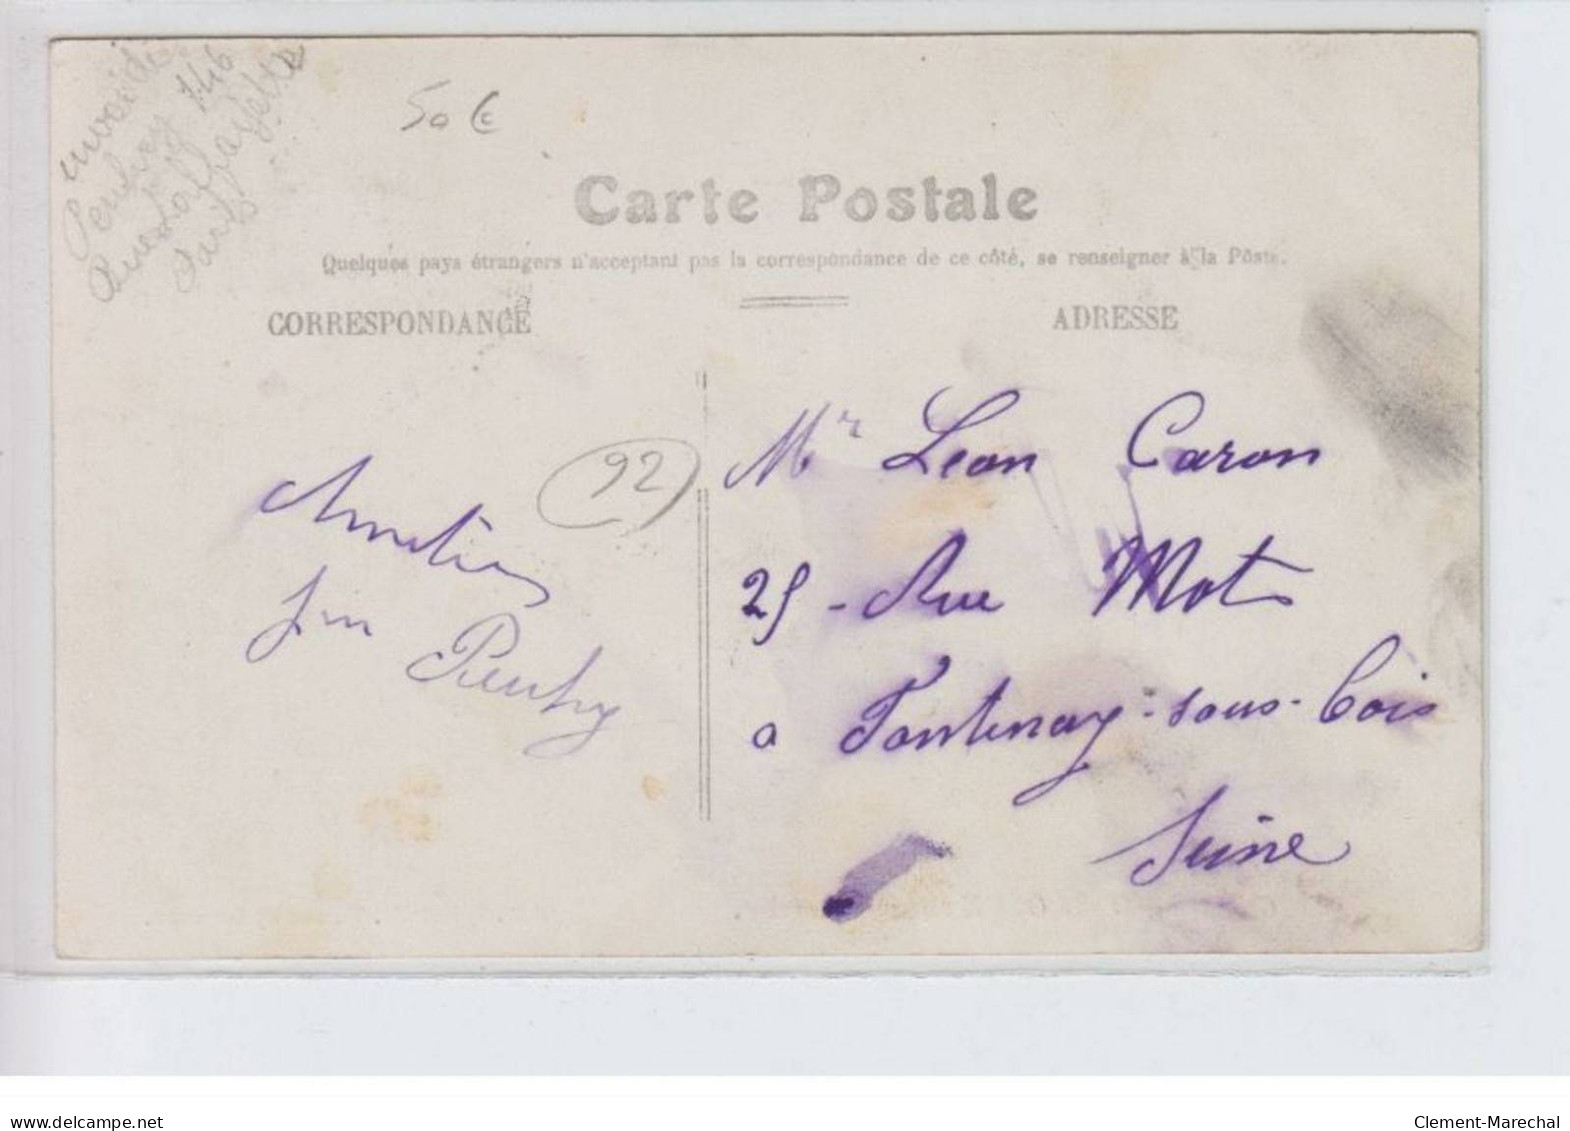 146
Paris
50 €
Carte Postale
Quelques pays étrangers n'acceptant pas la correspondance de ce côté, se renseigner à la Poste.
CORRESPONDANCE
ADRESSE
92
Mr Leon Caron
25 - Rue Mot
a Fontenay-sous-bois
Seine
www.delcampe.net
Clement-Marechal